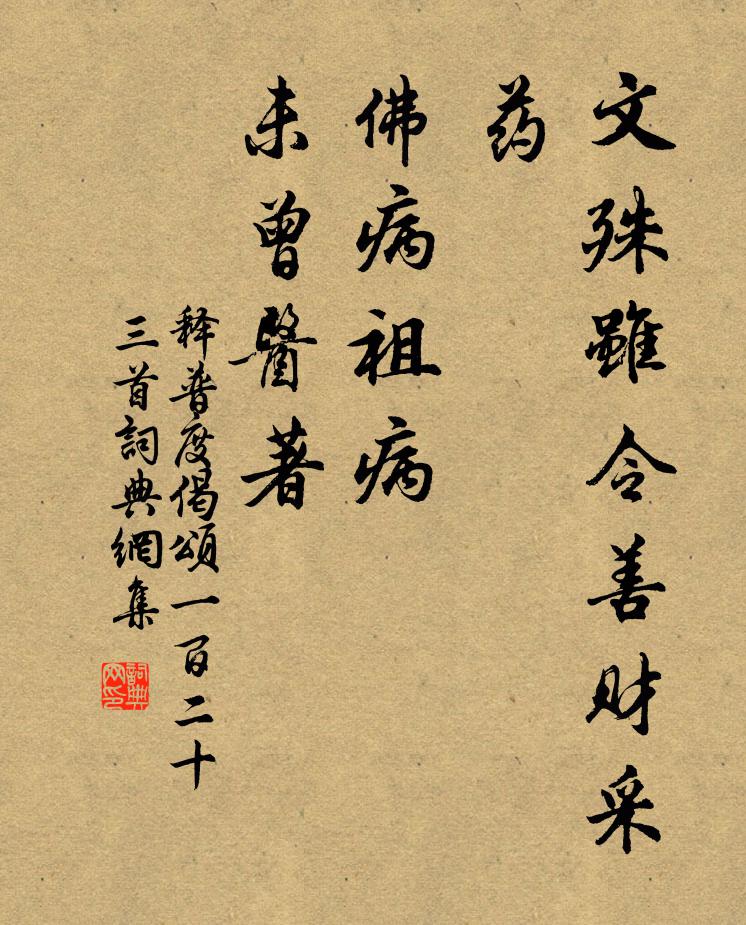 文殊雖令善财采
药
佛病祖病
未曾醫著
释普度偈頌一百二十
三首詞典網集
詞典
网印